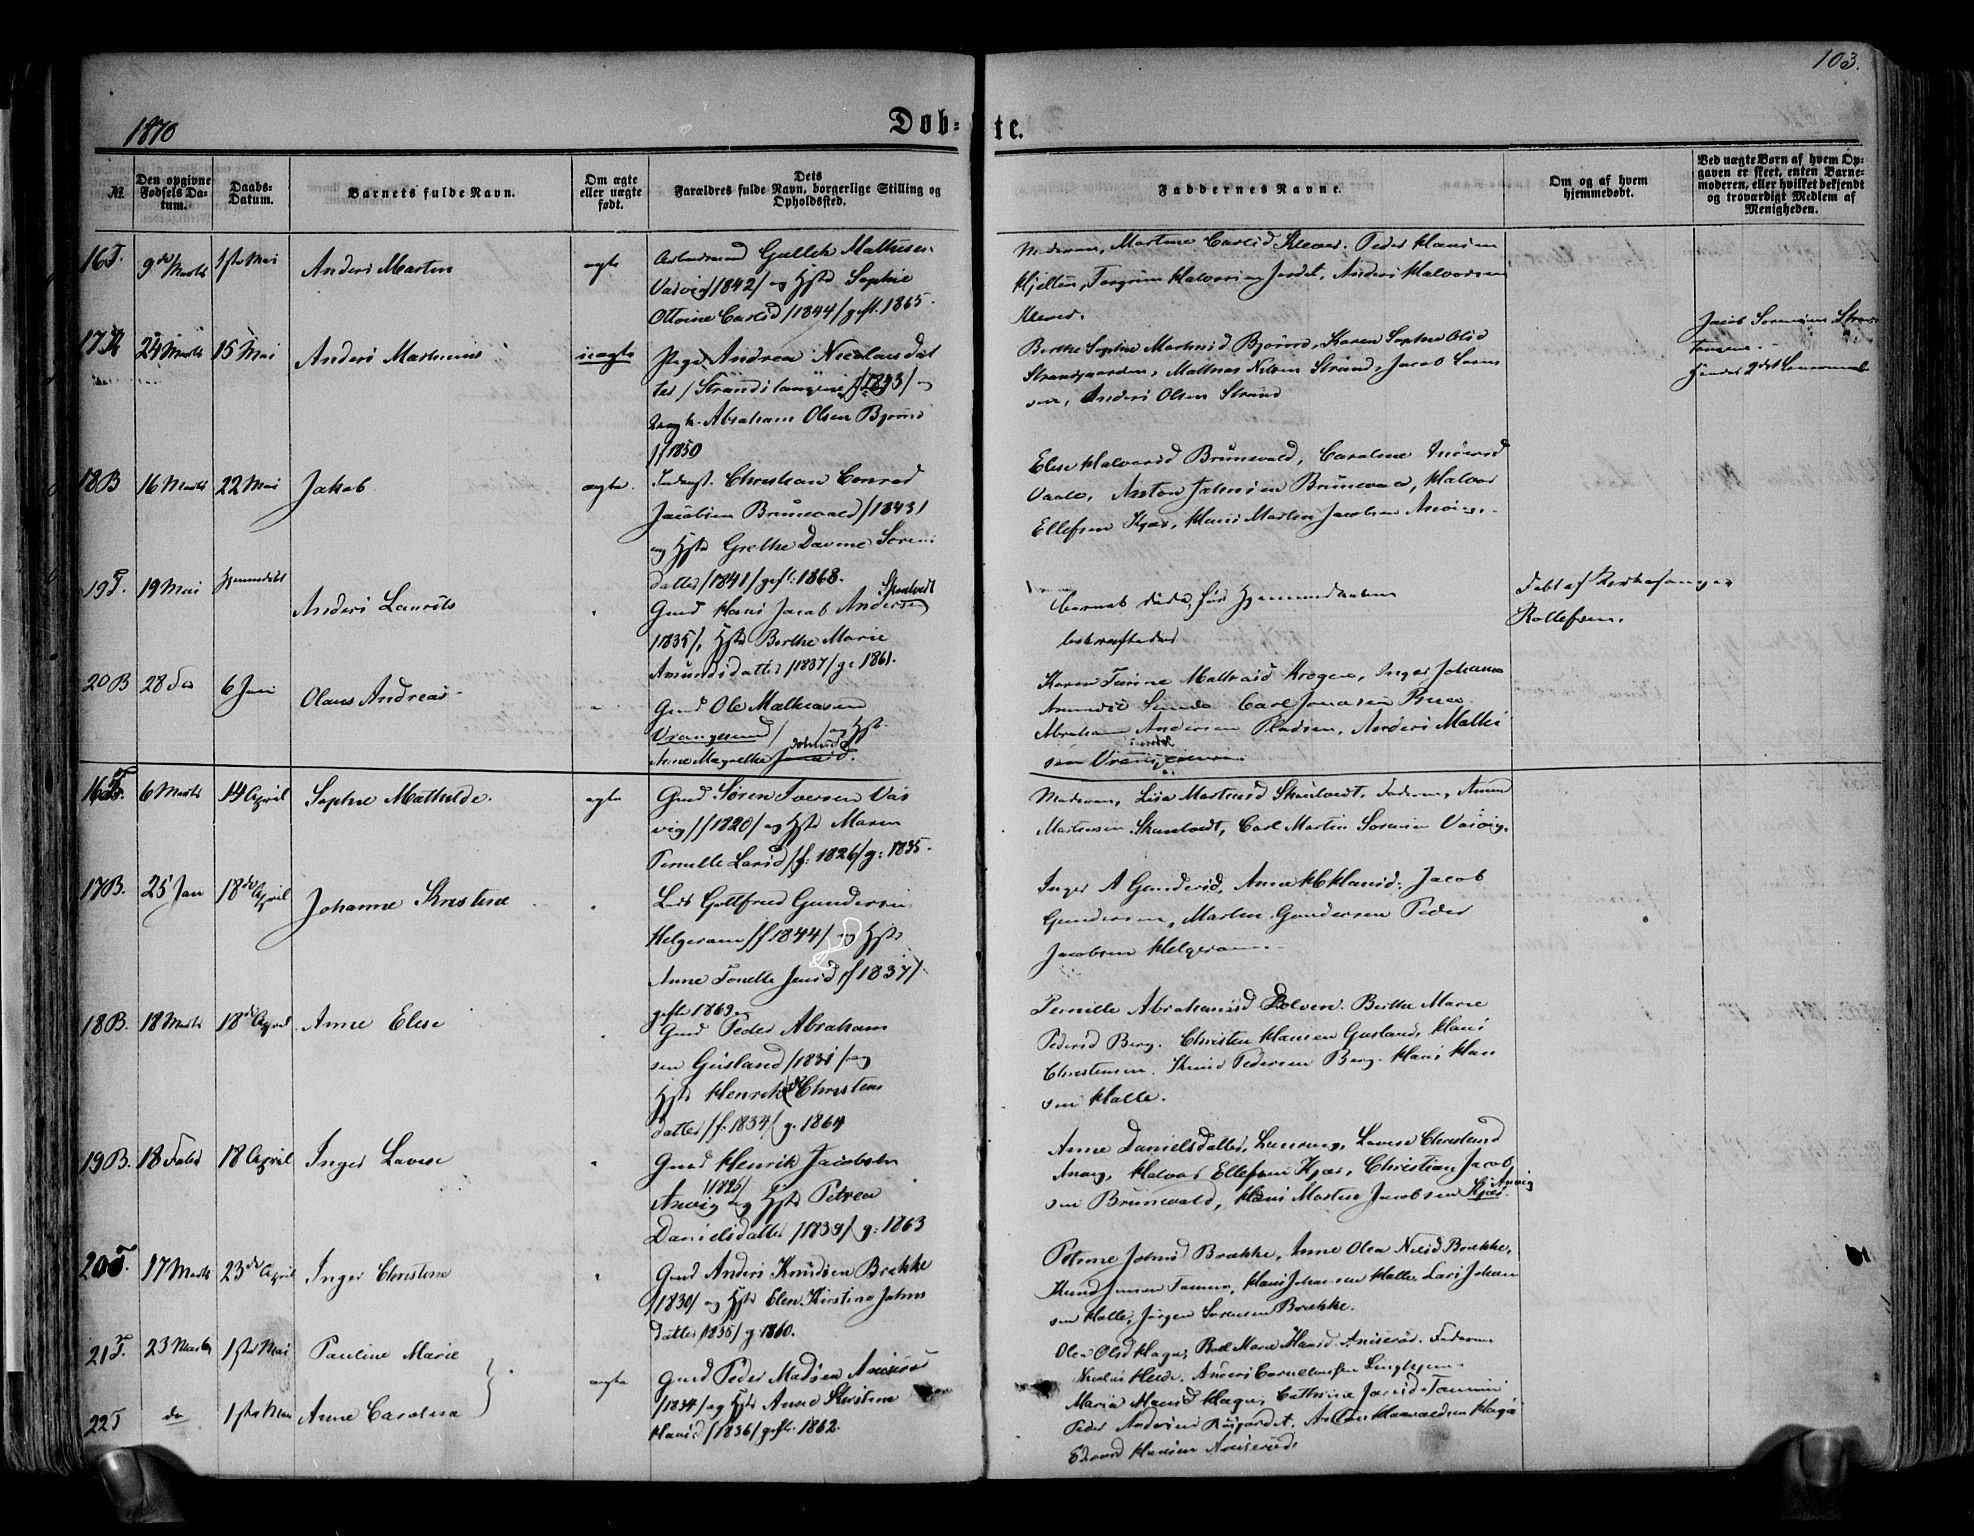 103.
1870
Døb-
te.
№.
Den opgivne Fødsels Da-
tum.
Daabs-
Datum.
Barnets fulde Navn.
Om ægte
eller uægte
født.
Dets
Forældres fulde Navn, borgerlige Stilling og
Opholdssted.
Faddernes Navne.
Om og af hvem
hjemmedøbt.
Ved uægte Børn af hvem Op-
gaven er skeet, enten Barne-
moderen, eller hvilket bekjendt
og troværdigt Medlem af
Menigheden.
16T. 9de Marts 1ste Mai Anders Martin ægte Gullek Mathisen
Vasvig /1842/ og Hst Sophie
Ottoine Carlsd /1844/ gift. 1865.
Moderen, Martine Carlsd Klever. Peder Hansen
Hjelten, Torgrim Halvorsen Jordet, Anders Halvorsen
Klever.
17 24 Marts 15 Mai Anders Martinius uægte Pige Andrea Nicolaisdat
ter / Strandstangene f 1833/ og
Abraham Olsen Bjønnes
/f 1850
Berthe Sophie Martinsd Bjønnes, Karen Sophie Olsd
Strandgaarden, Mathias Nilsen Strand, Jacob Søren
sen, Anders Olsen Strand
Jacob Sørensens
18B 16 Marts 22 Mai Jakob ægte. Christian Conrad
Jacobsen Brunevald /1843/
og Hst Grethe Davine Sørens
datter /1841/ gift: 1868.
Elise Halvorsd Brunevald, Caroline
Anton Johnsen Brunevald, Halvor
Ellefsen Kjær, Hans Martin Jacobsen
19T. 19 Mai Hjemmedøbt Anders Laurits " Gmd Hans Jacob Andersen Skaalvedt
/1835/, Hst Berthe Marie
Amundsdatter /1837/ g: 1861.
barnet døde, før Hjemmedaaben
bekræftedes
Døbt af Kirkesanger
Rollefsen.
20B 28 do 6 Juni Olaus Andreas " Gmd Ole Mathiasen
Vrangesund / / og Hst.
Anne Magrethe
Karen Turine Mathiasd Krogen, Inger Johanne
Amundsd Sundo Carl Jonasen
Abraham Andersen Pladsen, Anders Mathi
sen
16T. 6 Marts 14 April Sophie Mathilde. ægte Gmd Søren Iversen Vas
vig /f 1820/ og Hst Maren
Pernille Larsd /f: 1826/ g: 1835.
Moderen, Lisa Martinsd Skaalvedt, Faderen, Amund
Martinsen Skaalvedt, Carl Martin Sørensen Vasvig.
17B. 25 Jan 18de April Johanne Kristine " Gottfred Gundersen
Helgeraaen /f 1844/ og Hst
Anne Tonette Jensd /f 1837/
gift 1869
Inger A Gundersd, Anne H Hansd, Jacob
Gundersen, Martin Gundersen Peder
Jacobsen Helgeraaen.
18B. 18 Marts 18de April Anne Elise " Gmd Peder Abraham
sen Gusland /1831/ og
Hst Henrikke Christens
datter /f. 1834/ g. 1864
Pernille Abrahamsd Dolven. Berthe Marie
Pedersd Berg. Christen Hansen Gusland, Hans
Christensen. Knud Pedersen Berg. Hans Han
sen Halle.
19B. 18 Febr 18 April Inger Lovise " Gmd Henrik Jacobsen
/1825/
Anvig og Hst Petrea
Danielsdatter /1839/ g: 1863
Anne Danielsdatter, Lovise Christensd
Anvig, Halvor Ellefsen Kjær, Christian Jacob
sen Brunevald, Hans Martin Jacobsen Anvig
20T. 17 Marts 23de April Inger Christine " Gmd Anders Knudsen Brekke
/1830/ og Hst Elen Kirstine Johns
datter /1835/ g. 1860.
Petrine Johnsd Brække, Anne Olea Nilsd Brække,
Knud Jensen Tanum, Hans Johansen Halle, Lars Johan
sen Halle, Jørgen Sørensen Brække.
21T. 23 Marts 1ste Mai Pauline Marie
22T do 1ste Mai Anne Carolina ægte Gmd Peder Madsen Aniserød
/1834/ og Hst Anne Kirstine
Hansd /1836/ gift. 1862.
Olea Olsd Haga, Bodil Marie Hansd Aniserød. Faderen.
Nicolai Heide. Anders Corneliussen
Maria Hansd Haga, Cathrine Jacobsd Tanum
Peder Andersen Anton Haavaldsen Haga
Edvard Hansen Aniserød.